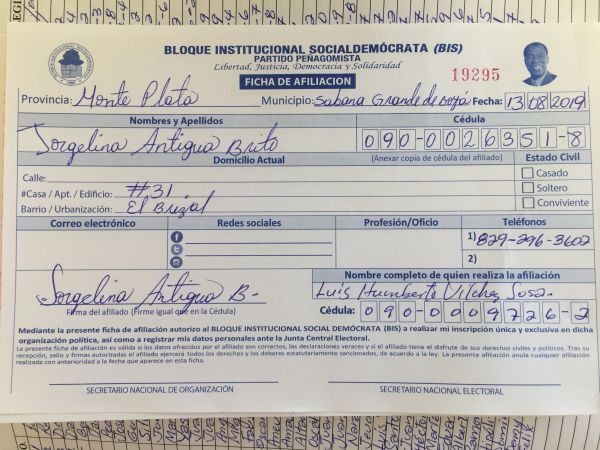 BLOQUE INSTITUCIONAL SOCIALDEMÓCRATA (BIS)
PARTIDO PEÑAGOMISTA
Libertad, Justicia, Democracia y Solidaridad
FICHA DE AFILIACION
19295
Provincia: Monte Plata Municipio: Sabana Grande de Boyá Fecha: 13/08/2019
Nombres y Apellidos Cédula
Jorgelina Antigua Brito 090-0026351-8
Domicilio Actual (Anexar copia de cédula del afiliado) Estado Civil
Calle: Casado
#Casa / Apt. / Edificio: #31 Soltero
Barrio / Urbanización: El Brizal Conviviente
Correo electrónico Redes sociales Profesión/Oficio Teléfonos
1) 829-296-3602
2)
Nombre completo de quien realiza la afiliación
Jorgelina Antigua B- Luis Humberto Vilchez Sosa
Firma del afiliado (Firme igual que en la Cédula) Cédula: 090-0009726-2
Mediante la presente ficha de afiliación autorizo al BLOQUE INSTITUCIONAL SOCIAL DEMÓCRATA (BIS) a realizar mi inscripción única y exclusiva en dicha
organización política, así como a registrar mis datos personales ante la Junta Central Electoral.
La presente ficha de afiliación es válida si los datos ofrecidos por el afiliado son correctos, las declaraciones veraces y si el afiliado tiene el disfrute de sus derechos civiles y políticos. Tras su
recepción, sello y firmas autorizadas el afiliado ejercerá todos los derechos y los deberes estatutariamente sancionados, de acuerdo a la ley. La presente afiliación anula cualquier afiliación
realizada con anterioridad a la fecha que aparece en esta ficha.
SECRETARIO NACIONAL DE ORGANIZACIÓN SECRETARIO NACIONAL ELECTORAL